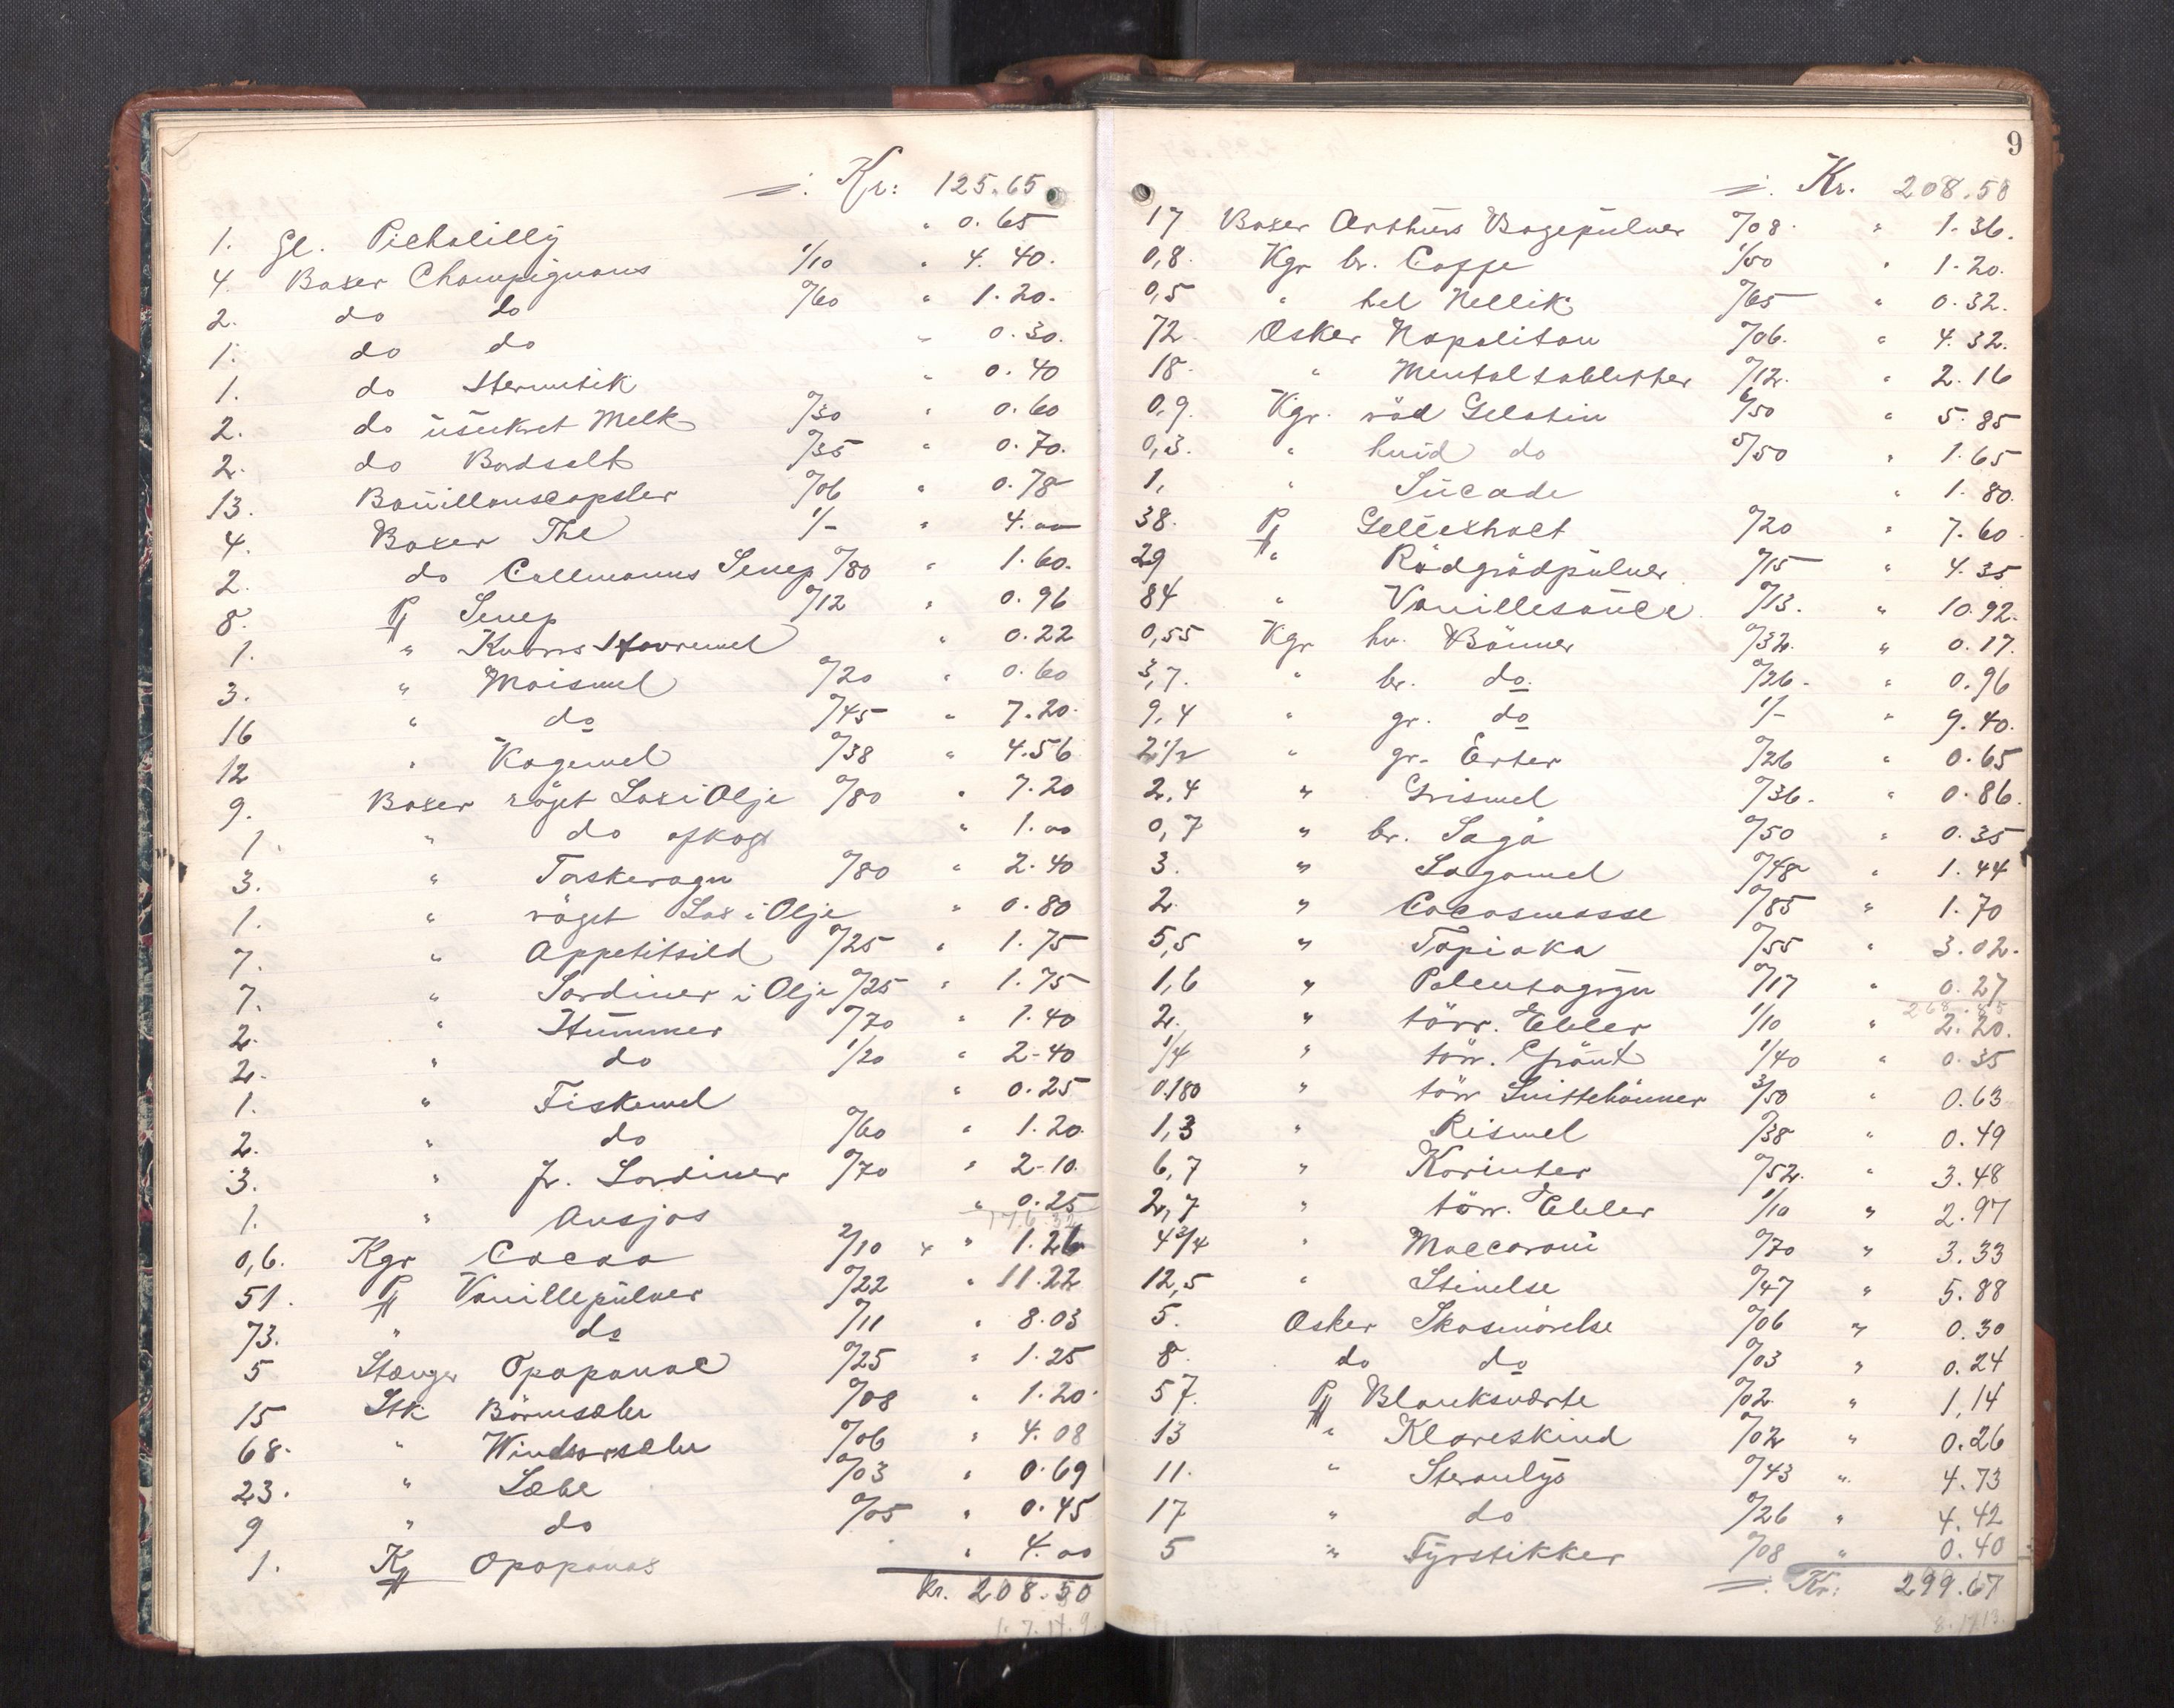 Kr: 125.65
1. Gl. Pickalilly " 0.65
4. Boxer Champignons 1/10 " 4.40.
2. do do 0/60 " 1.20.
1. do do " 0.30.
1. do Hermetik " 0.40
2. do üsukret Melk 0/30 " 0.60
2. do Bordsalt 0/35 " 0.70.
13. Boüillonscapsler 0/06 " 0.78
4. Boxer The 1/- " 4.00
2. do Collmanns Senep 0/80 " 1.60.
8. P Senep 0/12 " 0.96
1. " Knorrs Havremel " 0.22
3. " Maismel 0/20 " 0.60
16 " do 0/45 " 7.20.
12 " Kogemel 0/38 " 4.56
9. Boxer röget Lax i Olje 0/80 " 7.20
1. " do afkogt " 1.00
3. " Torskerogn 0/80 " 2.40
1. " röget Lax i Olje " 0.80
7. " Appetitsild 0/25 " 1.75
7. " Sardiner i Olje 0/25 " 1.75
2. " Hümmer 0/70 " 1.40
2. " do 1/20 " 2-40
1. " Fiskemel " 0.25
2. " do 0/60 " 1.20.
3. " fr. Sardiner 0/70 " 2-10.
1. " Ansjos " 0.25
176.32
0,6. Kgr Cacao 2/10 " " 1.26
51. P Vanillepülver 0/22 " 11.22
73. " do 0/11 " 8.03
5 Stænger Opoponac 0/25 " 1.25
15 Stk Börnesæbe 0/08 " 1.20.
68. " Windsorsæbe 0/06 " 4.08
23. " Sæbe 0/03 " 0.69
9 " do 0/05 " 0.45
1. Opoponax " 4.00
kr. 208.50
9
Kr. 208.50
17 Boxer Arthürs Bagepülver 0/08. " 1.36.
0,8. Kgr br. Caffe 1/50 " 1.20.
0,5 " hel Nellik 0/65 " 0.32.
72. Æsker Napolitan 0/06. " 4.32.
18. " Mentoltabletter 0/12. " 2.16
0,9. Kgr. röd Gelatin 6/50 " 5.85
0,3. " hvid do 5/50 " 1.65
1, " Sücade " 1.80.
38. P Geléextract 0/20 " 7.60.
29 " Rödgrödpülver 0/15 " 4.35
84 " Vanillesaüce 0/13. " 10.92.
0,55 Kgr hv. Bönner 0/32. " 0.17.
3,7. " br. do. 0/26. " 0.96
9,4 " gr. do 1/- " 9.40.
2 1/2 " gr. Erter 0/26 " 0.65
2,4 " Grismel 0/36. " 0.86.
0,7 " br. Sago 0/50 " 0.35
3. " Sagomel 0/48 " 1.44
2. " Cocosmasse 0/85 " 1.70
5,5 " Tapioka 0/55 " 3.02.
1,6 " Polentagryn 0/17 " 0.27
2. " törr. Ebler 1/10 " 2.20.
1/4 " törr. Grönt 1/40 " 0.35
0.180 " törr Snittebönner 3/50 " 0.63
1,3 " Rismel 0/38 " 0.49
6,7 " Korinter 0/52. " 3.48
2,7 " törr. Ebler 1/10 " 2.97
4 3/4 " Maccaroni 0/70 " 3.33
12,5 " Stivelse 0/47 " 5.88
5. Æsker Skosmörelse 0/06 " 0.30
8. do do 0/03 " 0.24
57. P Blanksværte 0/02 " 1,14
13 " Klareskind 0/02 " 0.26
11. " Stearilys 0/43 " 4.73
17 " do 0/26 " 4.42
5 " Fyrstikker 0/08 " 0.40
Kr: 299.67